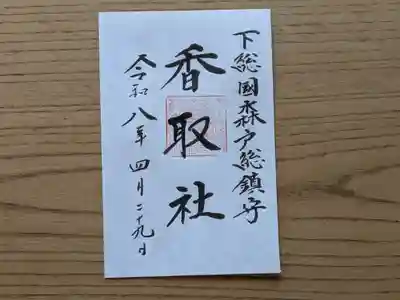 下総国森戸総鎮守
香取社
令和八年四月二十九日